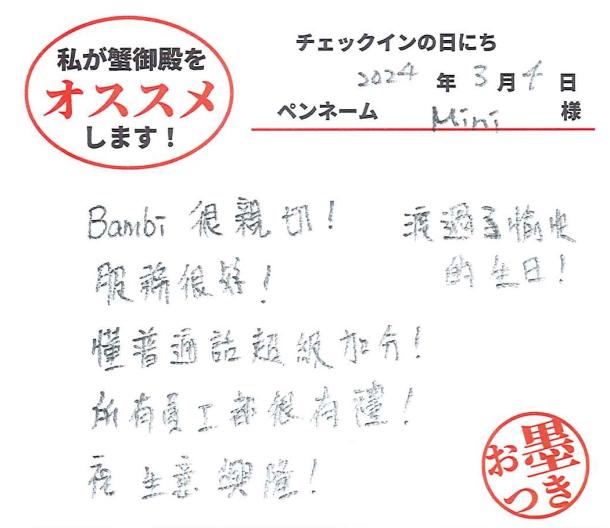 私が蟹御殿を
オススメ
します！
チェックインの日にち
2024 年 3 月 4 日
ペンネーム Mini 様
Bambi 很親切！
服務很好！
懂普通話超級加分！
所有員工都很有禮！
祝生意興隆！
渡過了愉快
的生日！
お墨
つき